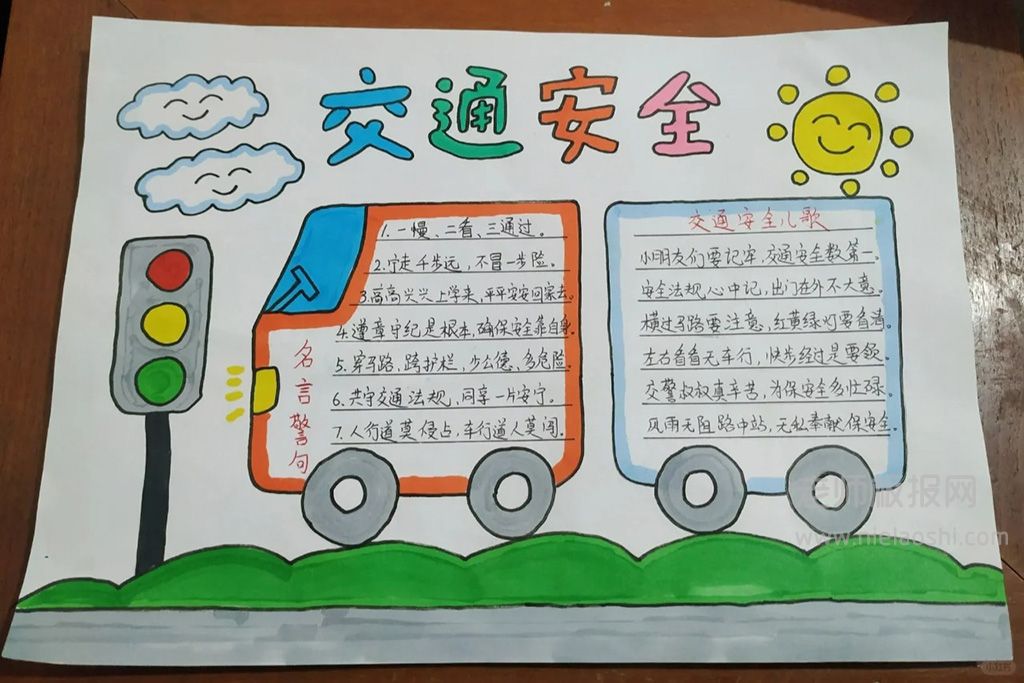 交通安全
1.一慢、二看、三通过。
2.宁走千步远,不冒一步险。
3.高高兴兴上学来,平平安安回家去。
4.遵章守纪是根本,确保安全靠自身。
5.穿马路,跨护栏,少公德、多危险。
6.共守交通法规,同享一片安宁。
7.人行道莫侵占,车行道人莫闯。
名言警句
交通安全儿歌
小朋友们要记牢,交通安全数第一。
安全法规心中记,出门在外不大意。
横过马路要注意,红黄绿灯要看清。
左右看看无车行,快步经过是要领。
交警叔叔真辛苦,为保安全多忙碌。
风雨无阻路中站,无私奉献保安全。
老师板报网